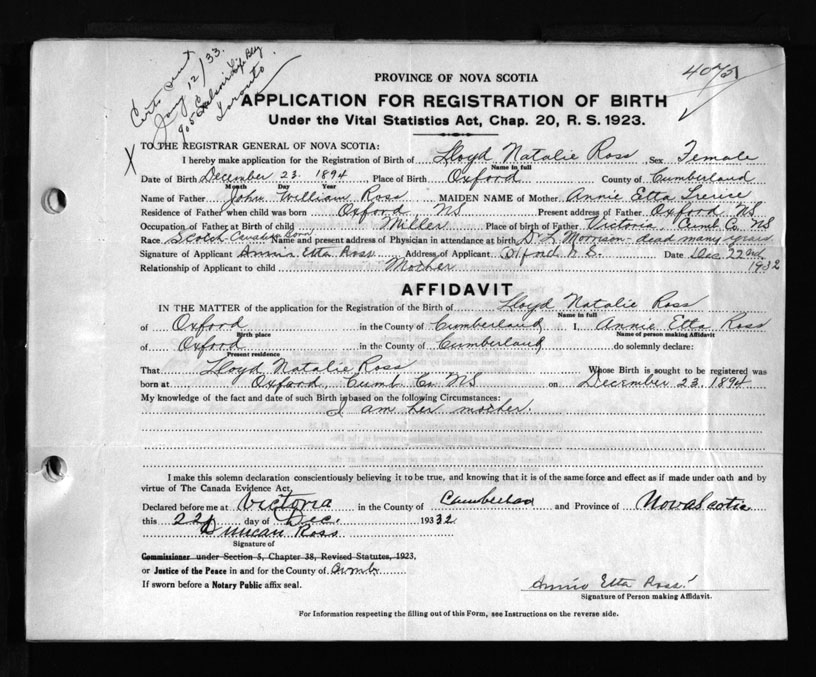 Cert sent
Jany 12/33.
905
Toronto.
4075
PROVINCE OF NOVA SCOTIA
APPLICATION FOR REGISTRATION OF BIRTH
Under the Vital Statistics Act, Chap. 20, R. S. 1923.
X TO THE REGISTRAR GENERAL OF NOVA SCOTIA:
I hereby make application for the Registration of Birth of Lloyd Natalie Ross Sex Female
Name in full
Date of Birth December 23. 1894 Place of Birth Oxford County of Cumberland
Month Day Year
Name of Father John William Ross MAIDEN NAME of Mother Annie Etta
Residence of Father when child was born Oxford NS Present address of Father Oxford NS
Occupation of Father at Birth of child Miller Place of birth of Father Victoria, Cumb Co. NS
Race Scotch Name and present address of Physician in attendance at birth Dr L Morrison - dead many years
Signature of Applicant Annie Etta Ross Address of Applicant Oxford N.S. Date Dec 22nd 1932
Relationship of Applicant to child Mother
AFFIDAVIT
IN THE MATTER of the application for the Registration of the Birth of Lloyd Natalie Ross
Name in full
of Oxford in the County of Cumberland I, Annie Etta Ross
Birth place Name of person making Affidavit
of Oxford in the County of Cumberland do solemnly declare:
Present residence
That Lloyd Natalie Ross Whose Birth is sought to be registered was
born at Oxford, Cumb Co NS on December 23. 1894
My knowledge of the fact and date of such Birth is based on the following Circumstances:
I am her mother.
I make this solemn declaration conscientiously believing it to be true, and knowing that it is of the same force and effect as if made under oath and by
virtue of The Canada Evidence Act.
Declared before me at Victoria in the County of Cumberland and Province of Nova Scotia
this 22 day of Dec. 1932
Duncan Ross
Signature of
Commissioner under Section 5, Chapter 38, Revised Statutes, 1923,
or Justice of the Peace in and for the County of Cumb
If sworn before a Notary Public affix seal.
Annie Etta Ross
Signature of Person making Affidavit.
For Information respecting the filling out of this Form, see Instructions on the reverse side.